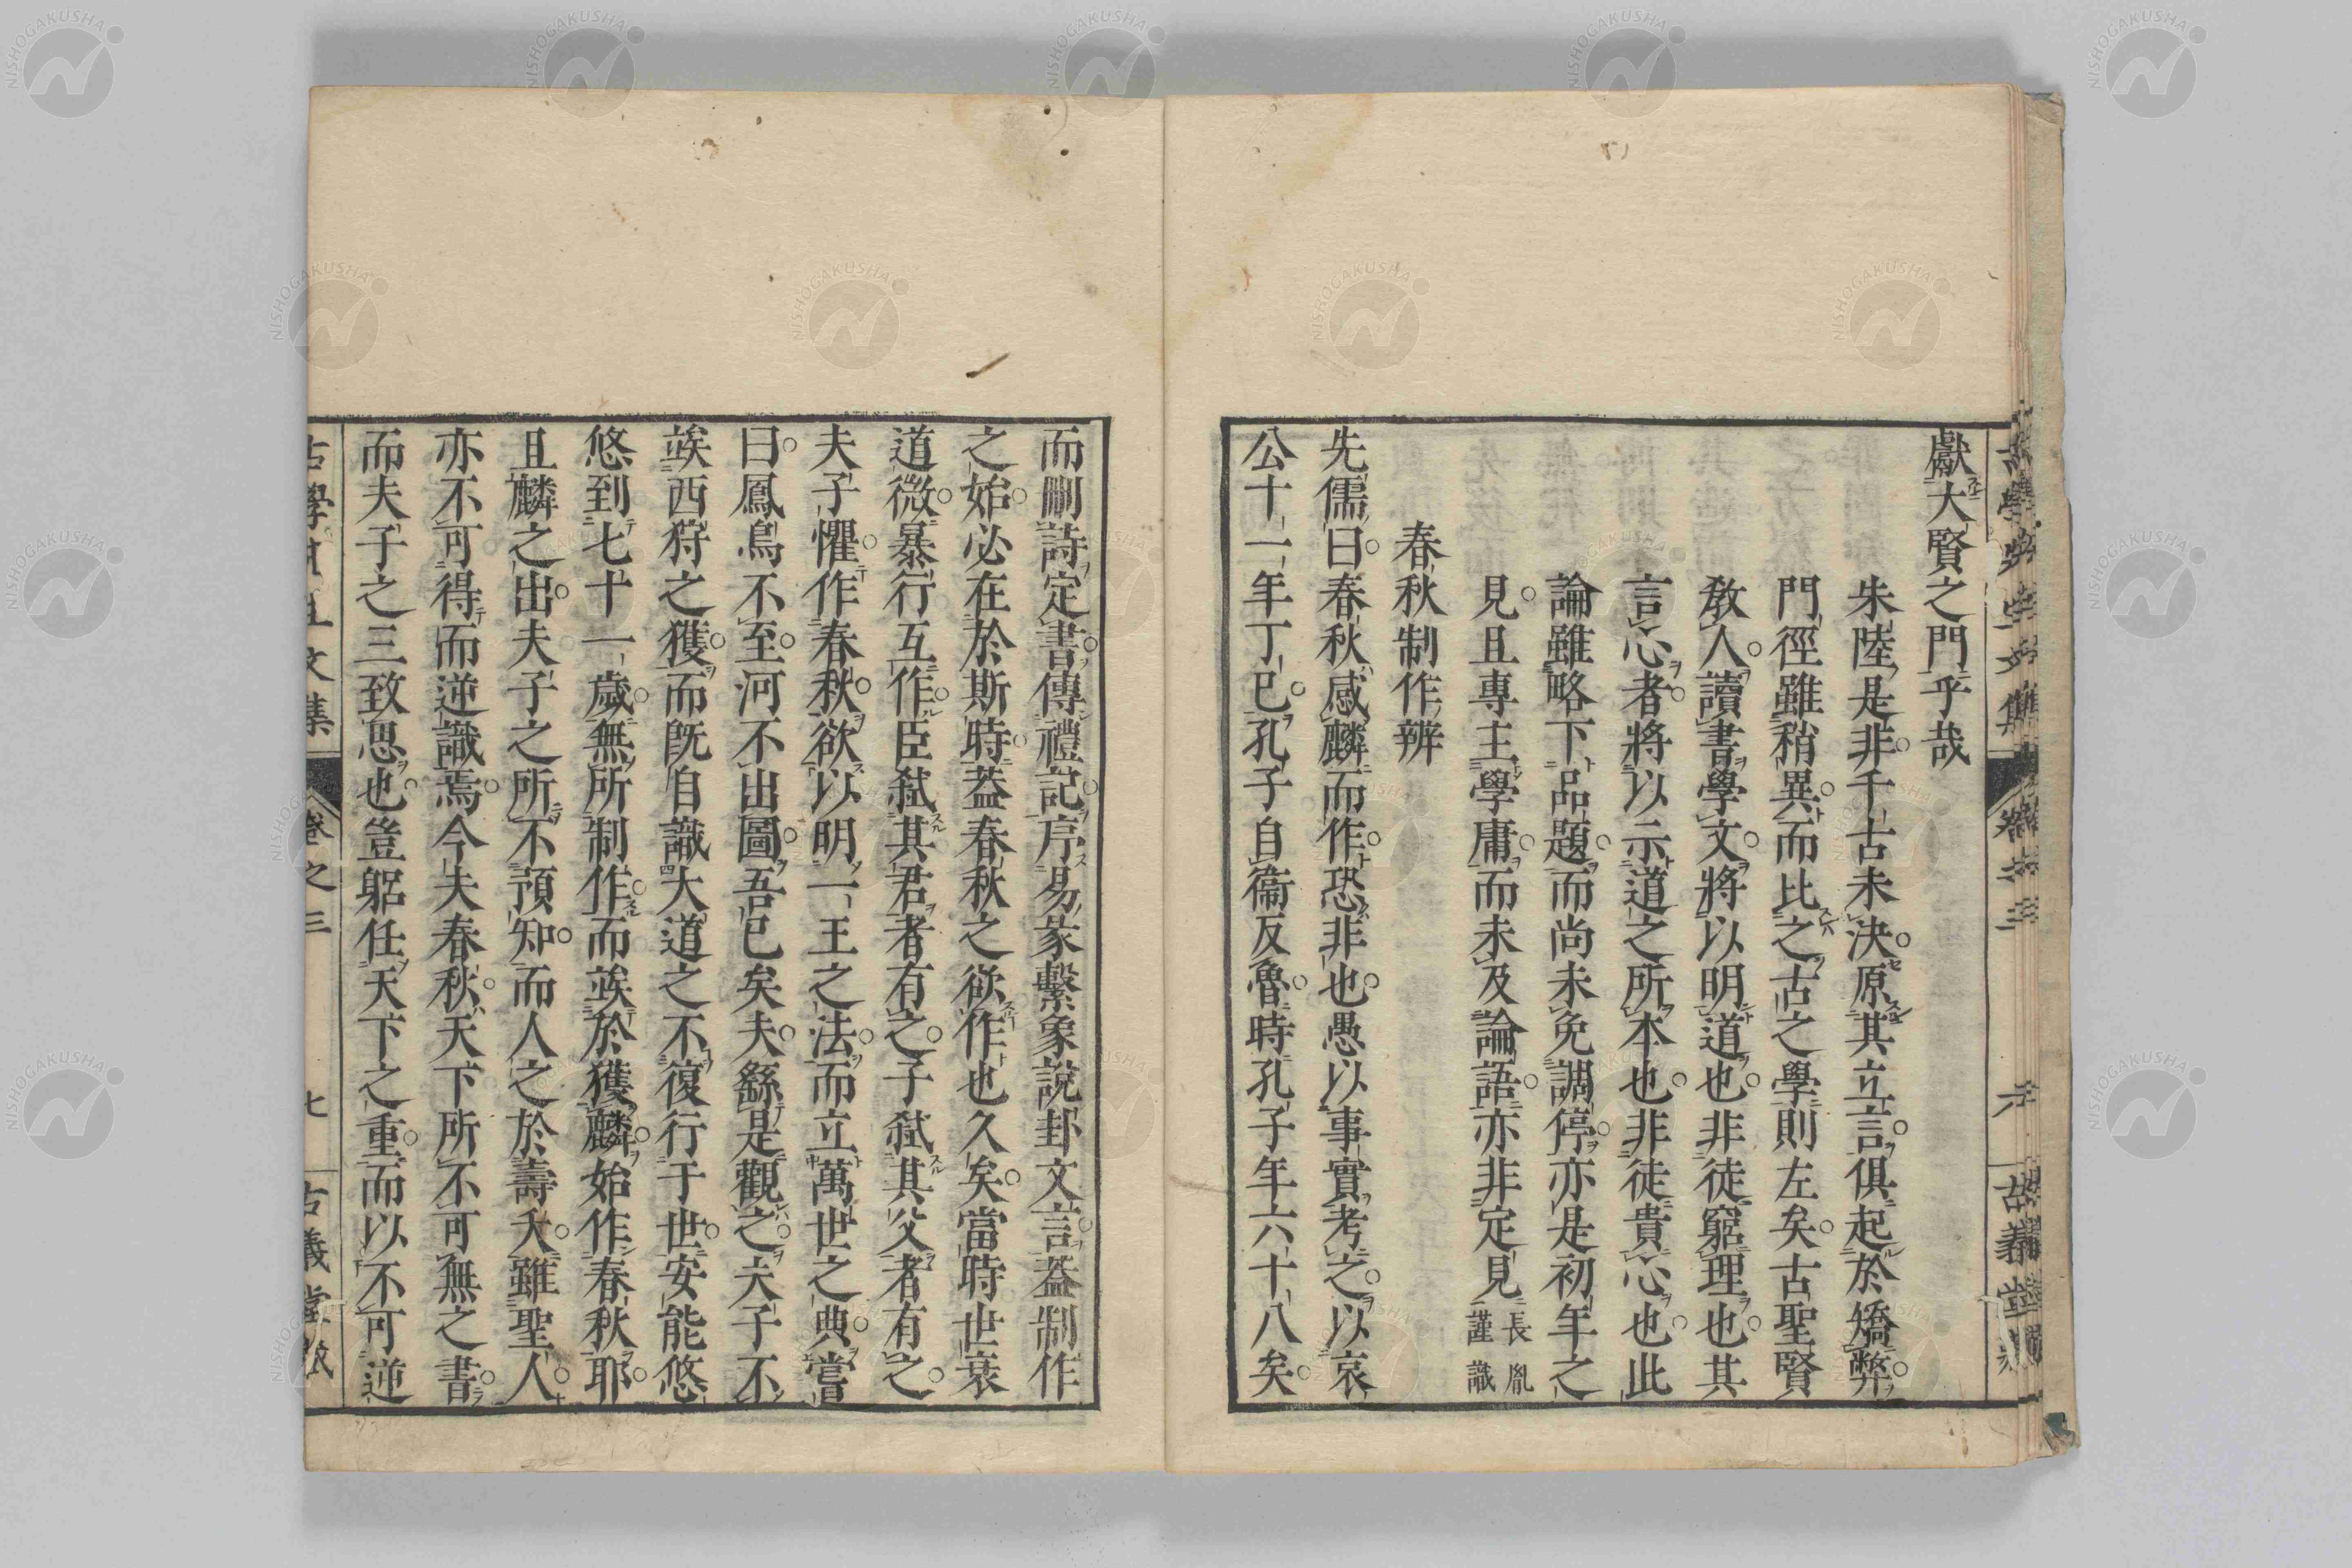 獻大賢之門乎哉
朱陸是非千古未決原其立言俱起於矯弊
門徑雖稍異而比之古之學則左矣古聖賢
敎人讀書學文將以明道也非徒窮理也其
言心者將以示道之所本也非徒貴心也此
論雖略下品題而尚未免調停亦是初年之
見且專主學庸而未及論語亦非定見長胤謹識
春秋制作辨
先儒曰春秋感麟而作恐非也愚以事實考之以哀
公十一年丁巳孔子自衞反魯時孔子年六十八矣
而刪詩定書傳禮記序易彖繫象說卦文言蓋制作
之始必在於斯時蓋春秋之欲作也久矣當時世衰
道微暴行互作臣弒其君者有之子弒其父者有之
夫子懼作春秋欲以明一王之法而立萬世之典嘗
曰鳳鳥不至河不出圖吾已矣夫繇是觀之夫子不
竢西狩之獲而既自識大道之不復行于世安能悠
悠到七十一歲無所制作而竢於獲麟始作春秋耶
且麟之出夫子之所不預知而人之於壽夭雖聖人
亦不可得而逆識焉今夫春秋天下所不可無之書
而夫子之三致思也豈躬任天下之重而以不可逆
古學先生文集 卷之三 七 古義堂藏
NISHOGAKUSHA